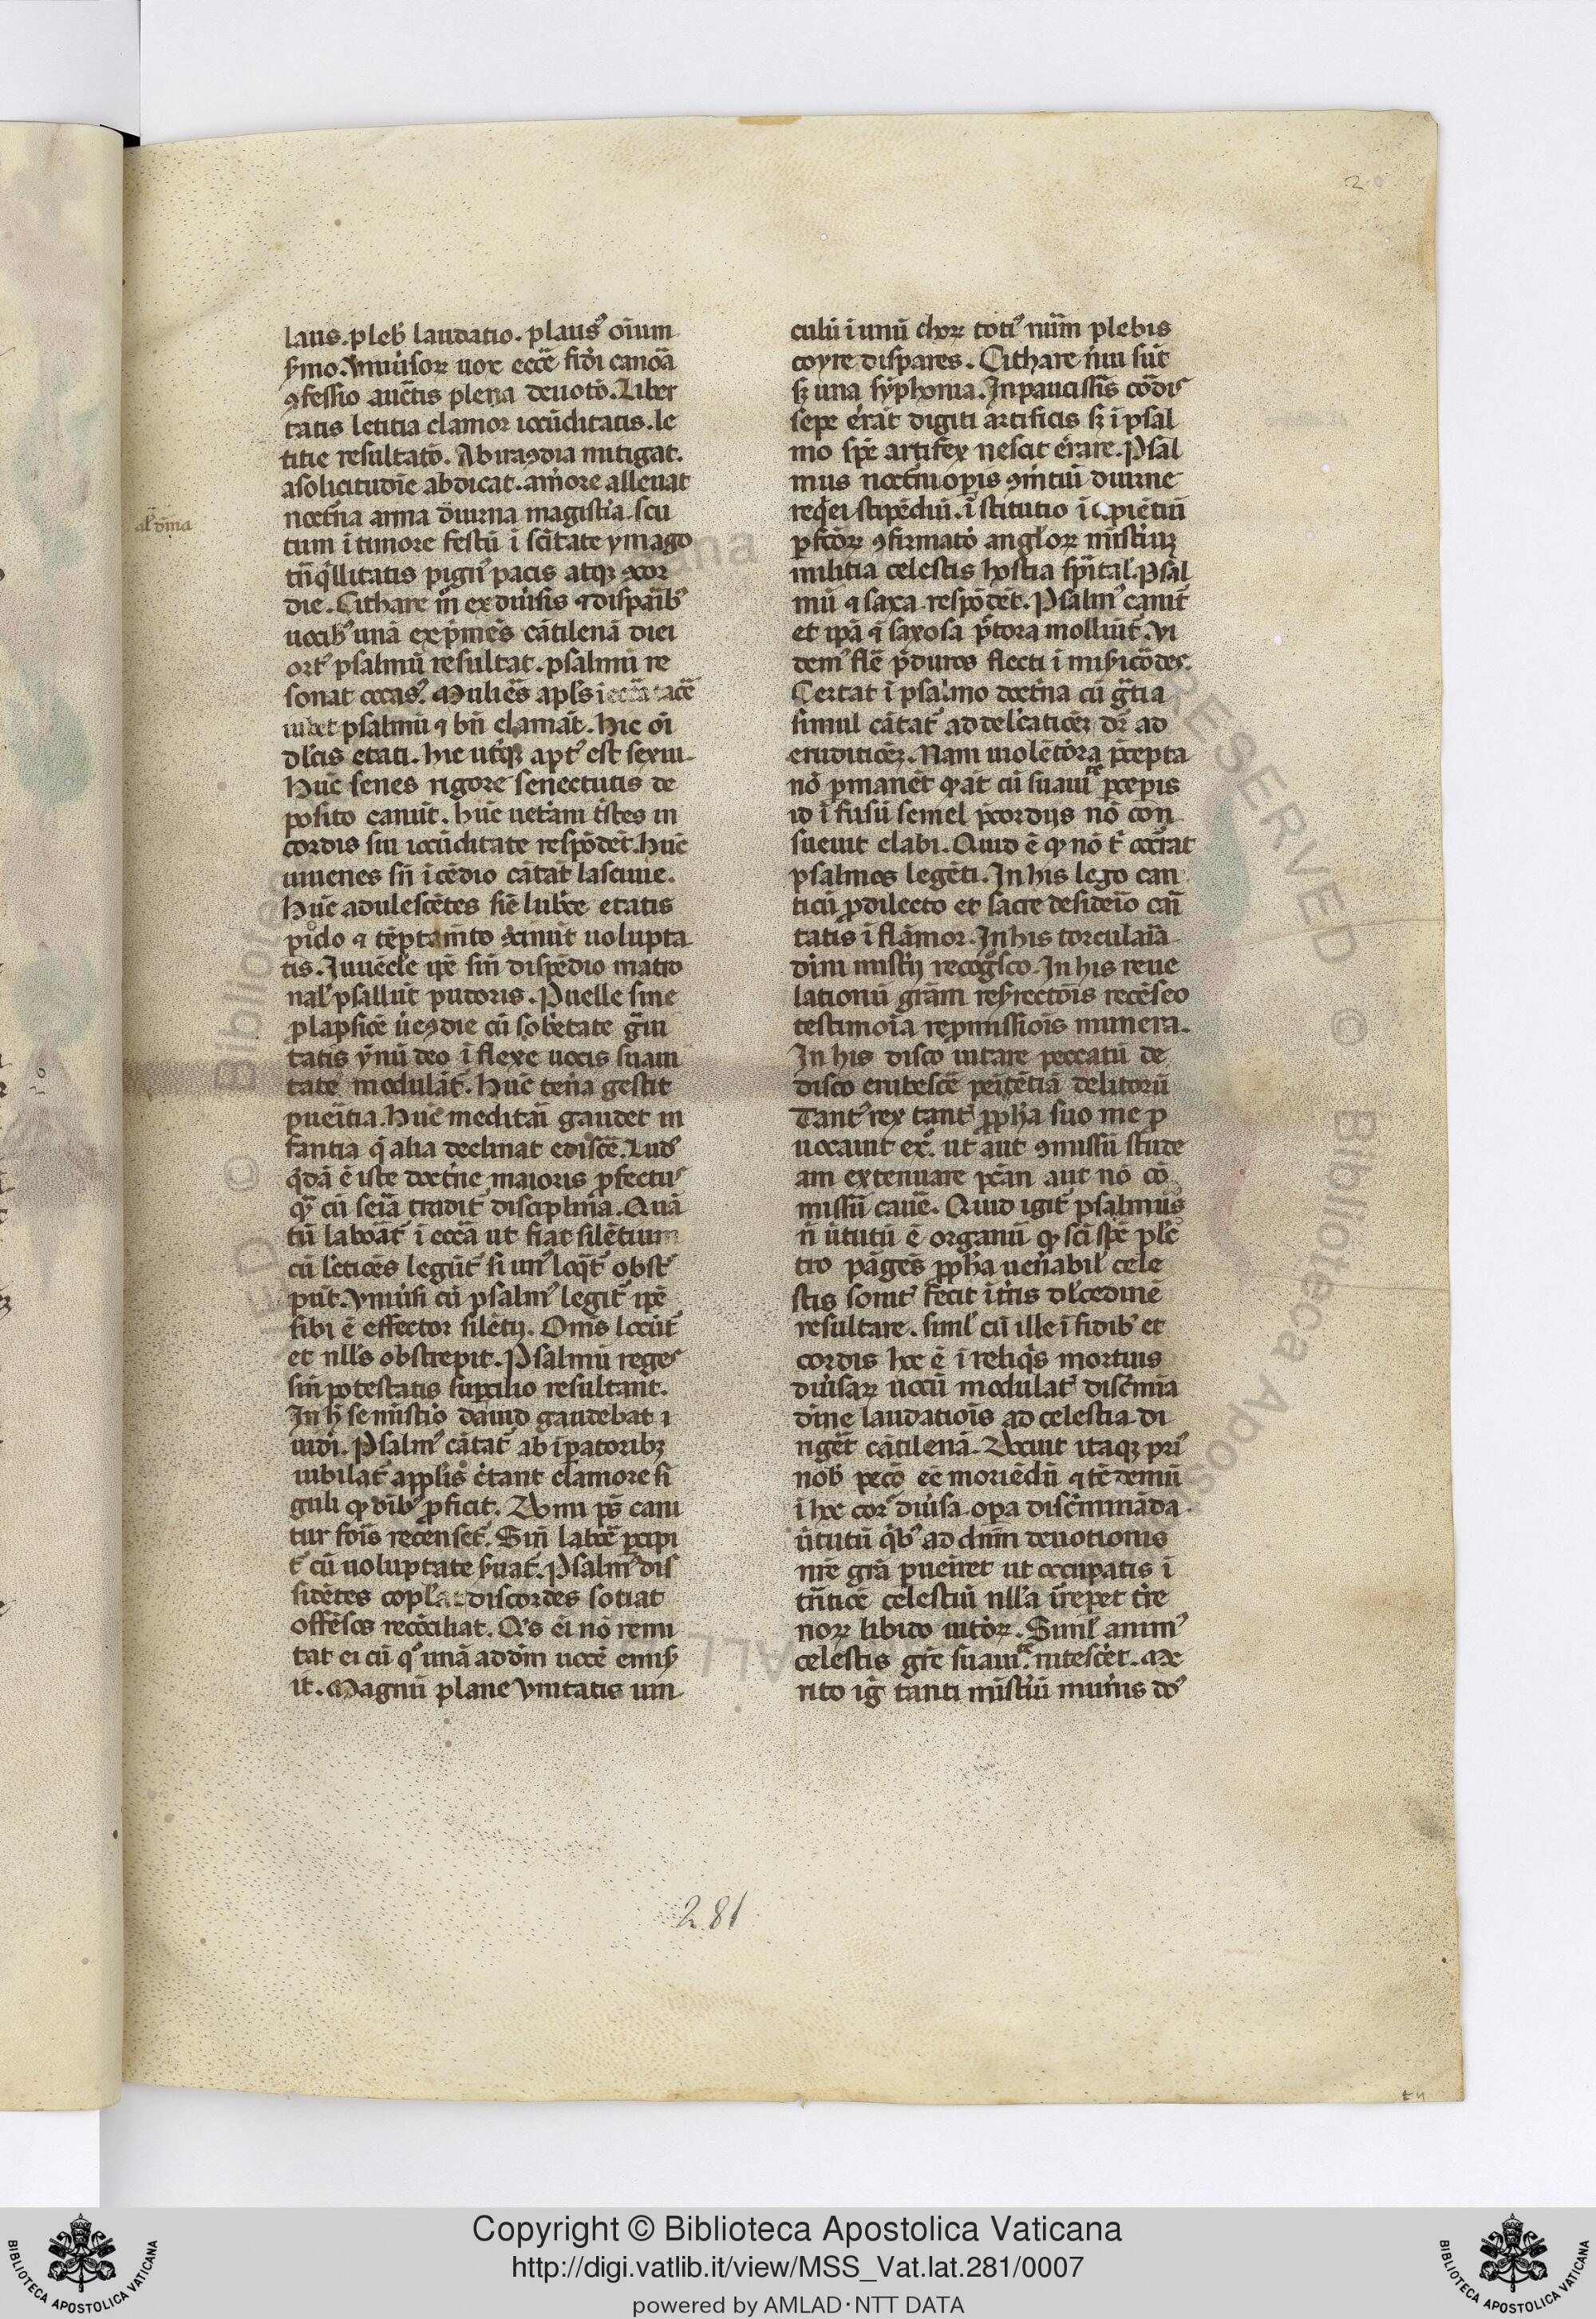 2
laus. pleb' laudatio. plaus' oīum
s̓mo. Vniuisoꝝ uox ecc̄e fidi canoā
ꝯfessio auc̄tis plena deuotō. Liber
tatis letitia clamor iocūditatis. le
titie resultatō. Ab iraꝯdia mitigat.
a solicitudīe abdicat. a m̓ore alleuat
noct̓na arma diurna magist̓ia. scu
tum ī timore festū ī scītate ymago
tn̄q̓llitatis pign' pacis atqꝫ ꝯcor
die. Cithare m̄ ex diu̓sis ⁊ dispaīb'
uocib' unā exp̓mēs cātilenā diei
ort' psalmū resultat. psalmū re
sonat occas'. Mulieēs apl's i eccl̄a tacē
iubet psalmū ⁊ bn̄ clamāt. hic oī
dl'cis etati. hic ut̓qꝫ apt' est sexui.
Hūc senes rigore senectutis de
posito canūt. hūc uet̓ani t̓stes in
cordis sui iocūditate respōdēt. hūc
iuuenes sn̄ īcēdio cātāt lasciuie.
Hūc adulescētes sīe lubrice etatis
pi̓do ⁊ tēptam̄to ꝯcinūt uolupta
tis. Iuuēcl'e ip̄e sin̄ dispēdio matro
nal' psallūt pudoris. Puelle sine
ꝓlapsiōe u̓ecūdie cū sob̓etate g̓ui
tatis ymnū deo ī flexe uocis suaui
tate modulāt. Hūc ten̓a gestit
pueītia. Hūc meditaī gaudet in
fantia q̄ alia declinat ediscē. Lud'
q̓dā ē iste doct̓ne maioris ꝓfectus
q̄ cū seīa tradit' disciplina. Quā
tū laboāt ī eccā ut fiat silētium
cū lētiōes legūt' si un' loq̄t' obst'
pūt. Vniu̓si cū psalm' legit' ip̄e
sibi ē effector silētij. Oms̄ locūt'
et nll's obstrepit. Psalmū reges
sin̄ potestatis suꝑcilio resultant.
In h̄ se mist̓io dauid gaudebat
uidi. Psalm' cātat' ab īperatoribꝫ
iubilat' a ppl'is c̓tant clamore si
guli qͩ oīb' ꝓficit. Domi ps̄ cani
tur foīs recenset'. Sin̄ laboē ꝑcipi
t' cū uoluptate s̓uat'. Psalm' dis
sidētes copl'at discordes sotiat
offēsos recōciliat. Qͥs ēi nō remi
tat ei cū qͦ unā ad dm̄ uocē emis̓
it. Magnū plane vnitatis uin
culū ī unū choꝝ toti' num̄ plebis
coyre dispares. Cithare nui sūt
sꝫ una sȳphonia. In paucissīs cōdis
sepe errāt digiti artificis sꝫ ī psal
mo spē artifex nescit errare. Psal
mus noct̓ni opīs ꝯmītiū diurne
req̓ei stipēdiū. ī stitutio īcipiētiū
ꝑfctōꝝ ꝯfirmatō angl'oꝝ mīstiuꝫ
militia celestis hostia spītal'. Psal
mū ⁊ saxa respōdēt. Psalm' canit'
et ip̄a ⁊ saxosa p̄tora molliūt'. Vi
dem' flē p̄duros flecti ī mis̓icōdes.
Certat ī psalmo doct̓na cū gr̄tia
simul cātat' ad delc̓atiōeꝫ dr̄ ad
eruditiōeꝫ. Nam uiolētōra p̄cepta
nō ꝑmanēt qͩ āt cū suauit' ꝑcepis
id īfusū semel p̄cordijs nō con
sueuit elabi. Quid ē qͩ nō t̓ occ̓rat
psalmos legēti. In his lego can
ticū ꝓ dilecto et sacre desideīo cai̓
tatis īflāmor. In his torculaīa
dim̄ mist̓ij recogn̄sco. In his reue
lationū grām res̓rectōis recēseo
testimoīa repromissiōis munera.
In his disco uitare peccatū de
disco erubescē peītētiā delitorū
Tant' rex tant' ꝓph̓a suo me ꝓ
uocauit ex̄. ut aut ꝯmissū stude
am extenuare pc̄an aut nō cō
missū cauē. Quid igit' psalmus
n̄ u̓tutū ē organū qͩ scī spē ple
tro pāgēs ꝓph̓a uen̓abil' cele
stis sonit' fecit īt̓ris dl'cedinē
resultare. siml' cū ille ī fidib' et
cordis hoc ē ī reliq̓s mortuis
diu̓saꝝ uocū modulat' disc̓mia
dīne laudatiois ad celestia di
riget̄ cātilenā. Docuit itaqꝫ pri'
nob' pecō eē moriēdū ⁊ tē demū
ī hoc cor' diu̓sa opa disc̓minada
u̓tutū q̓b' ad dnm̄ deuotionis
nr̄e grā ꝑueiret ut occupatis ī
tn̄tiōē celestiū nll'a u̓repet t̓re
noꝝ libido uitōꝝ. Siml' anim'
celestis grē suauit'. nitesc̓et. Me
rito ig̓ tanti mīst̓iū mūnis do'
281
Copyright © Biblioteca Apostolica Vaticana
http://digi.vatlib.it/view/MSS_Vat.lat.281/0007
powered by AMLAD·NTT DATA
BIBLIOTECA APOSTOLICA VATICANA
BIBLIOTECA APOSTOLICA VATICANA